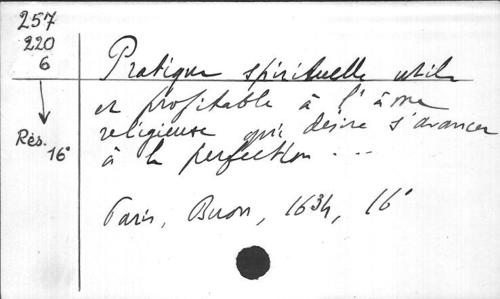 257
220
6
Rés. 16°
Pratique spirituelle utile
et profitable à l'âme
religieuse qui désire s'avancer
à la perfection ...
Paris, Buon, 1634, 16°